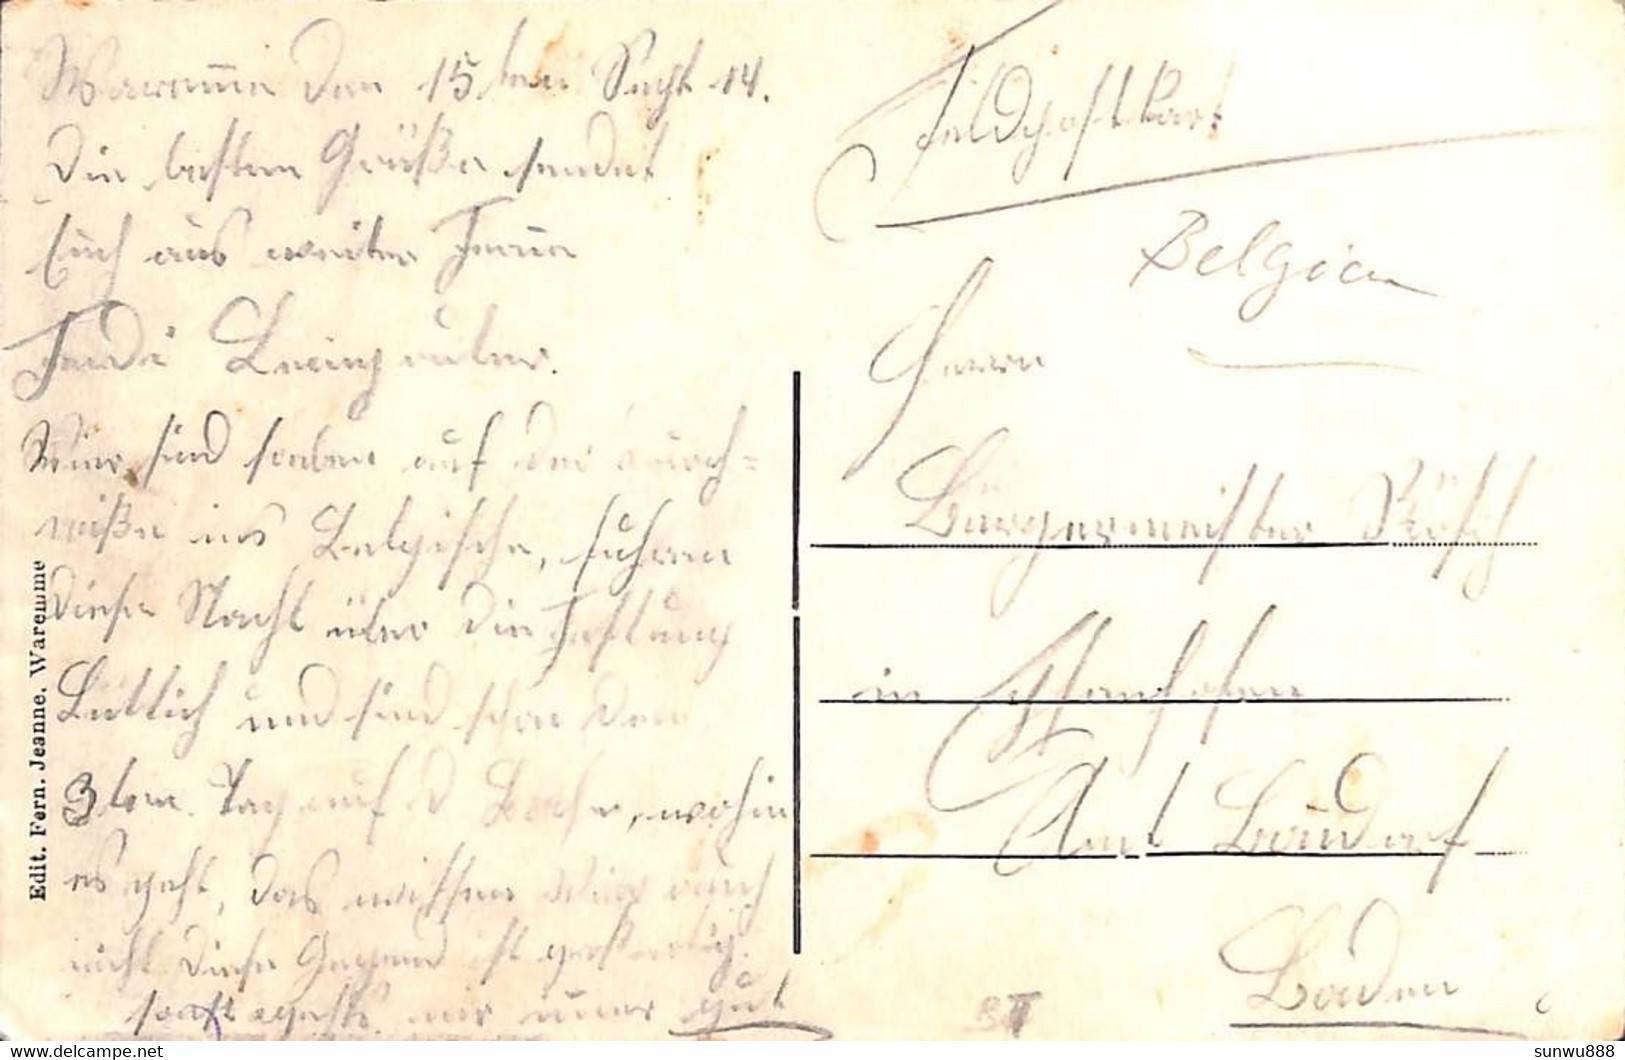 Waremme den 15ten Sept 14.
Die besten Grüße sendet
Euch aus weiter Ferne
Ferdi
Wir sind soeben auf der Durch-
reiße ins Belgische, fuhren
diese Nacht über die Festung
Lüttich und sind schon den
3ten Tag auf d Bahn, wohin
es geht, das wissen wir auch
nicht diese Gegend ist großartig.
sonst gehts mir immer gut
Edit. Fern. Jeanne, Waremme
Feldpostkart
Belgien
Herrn
Burgermeister Rösch
in
Amt Bonndorf
Baden
sunwu888